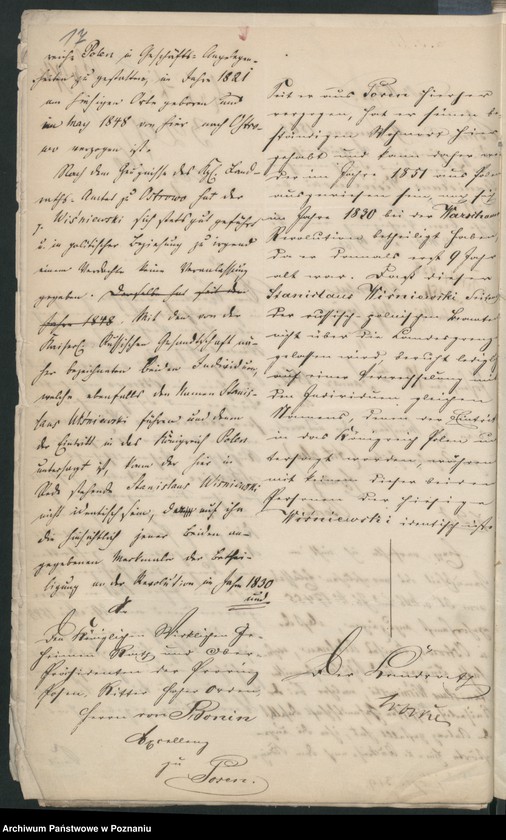 17
reich Polen in Geschäfts-Angelegen-
heiten zu gestatten, im Jahre 1821
am hiesigen Orte geboren und
im May 1848 von hier nach Ostro-
wo verzogen ist.
Nach dem Zeugnisse des Kgl. Land-
raths-Amtes zu Ostrowo hat der
p. Wiśniewski sich stets gut geführt
u. in politischer Beziehung zu irgend
einem Verdachte keine Veranlassung
gegeben. Derselbe hat seit dem
Jahre 1848 Mit den von der
Kaiserl. Russischen Gesandtschaft nä-
her bezeichneten beiden Individuen,
welche ebenfalls den Namen Stanis-
laus Wiśniewski führen und denen
der Eintritt in das Königreich Polen
untersagt ist, kann der hier in
Rede stehende Stanislaus Wiśniewski
nicht identisch sein, da auf ihn
die hinsichtlich jener beiden an-
gegebenen Merkmale der Bethei-
ligung an der Revolution im Jahre 1830
und
An
den Königlichen Wirklichen Ge-
heimen Rath und Ober-
Präsidenten der Provinz
Posen, Ritter hoher Orden,
Herrn von Bonin
Excellenz
zu
Posen.
Seit er aus Posen hierher
verzogen, hat er seinen be-
ständigen Wohnort hier
gehabt und kann daher
im Jahre 1851 aus
ausgewiesen sein,
im Jahre 1830 bei der Warschauer
Revolution betheiligt haben,
da er damals erst 9 Jahr
alt war. Daß dieser
Stanislaus Wiśniewski
der russisch-polnischen
nicht über die Landesgrenze
gelassen wird, beruht lediglich
auf einer Verwechselung mit
den Individuen gleichen
Namens, denen der Eintritt
in das Königreich Polen un-
tersagt worden, während
mit keinem dieser beiden
Personen der hiesige
Wiśniewski identisch ist.
Der Landrath
Archiwum Państwowe w Poznaniu